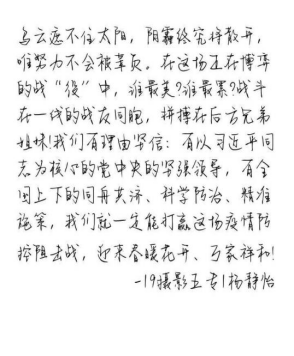 乌云遮不住太阳，阴霾终究将散开，
唯努力不会被辜负。在这场正在博弈
的战“役”中，谁最美？谁最累？战斗
在一线的战友同胞，拼搏在后方兄弟
姐妹！我们有理由坚信：有以习近平同
志为核心的党中央的坚强领导，有全
国上下的同舟共济、科学防治、精准
施策，我们就一定能打赢这场疫情防
控阻击战，迎来春暖花开、万家祥和！
-19摄影五专1杨静怡